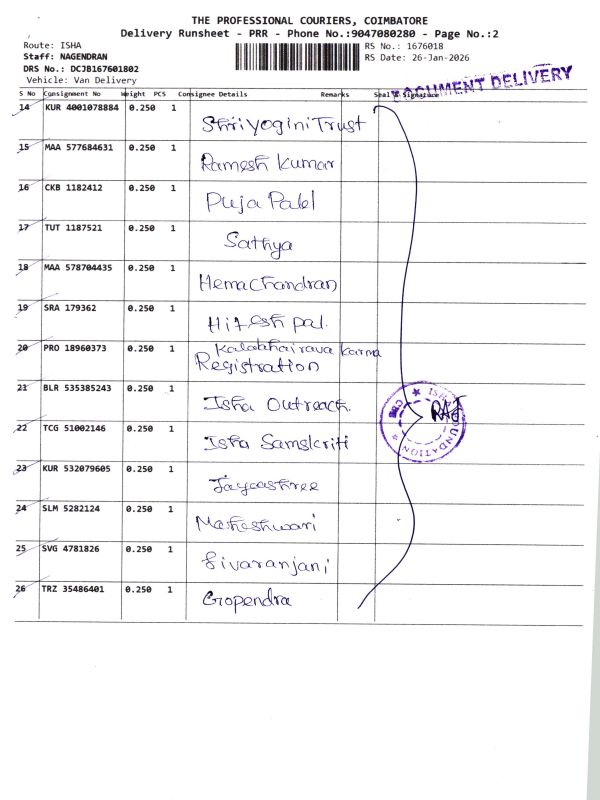 THE PROFESSIONAL COURIERS, COIMBATORE
Delivery Runsheet - PRR - Phone No.:9047080280 - Page No.:2
Route: ISHA RS No.: 1676018
Staff: NAGENDRAN RS Date: 26-Jan-2026
DRS No.: DCJB167601802
Vehicle: Van Delivery
DOCUMENT DELIVERY
S No Consignment No Weight PCS Consignee Details Remarks Seal & Signature
14 KUR 4001078884 0.250 1
Shri Yogini Trust
15 MAA 577684631 0.250 1
Ramesh Kumar
16 CKB 1182412 0.250 1
Puja Patel
17 TUT 1187521 0.250 1
Sathya
18 MAA 578704435 0.250 1
Hemachandran
19 SRA 179362 0.250 1
Hitesh pal.
20 PRO 18960373 0.250 1
Kalabhairava Karma
Registration
21 BLR 535385243 0.250 1
Isha Outreach.
22 TCG 51002146 0.250 1
Isha Samskriti
23 KUR 532079605 0.250 1
Jayashree
24 SLM 5282124 0.250 1
Maheshwari
25 SVG 4781826 0.250 1
Sivaranjani
26 TRZ 35486401 0.250 1
Gopendra
ISHA FOUNDATION
RAJ